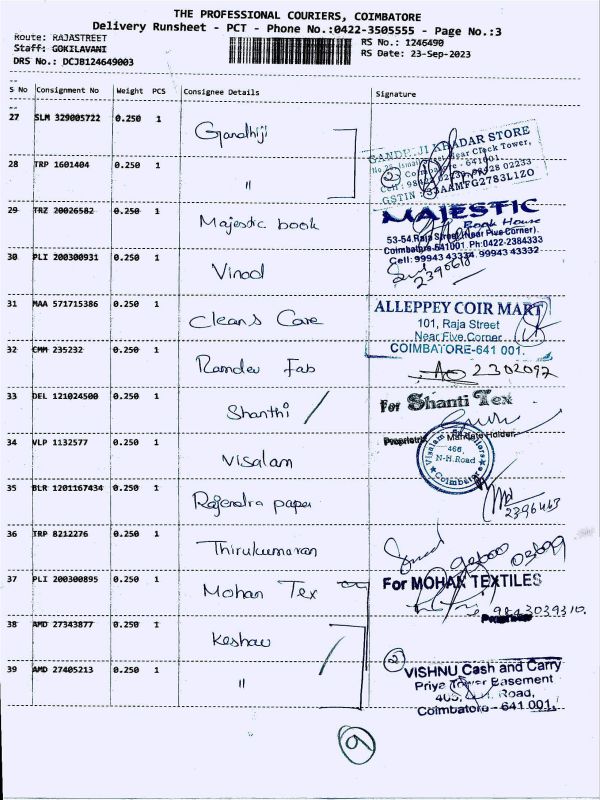 THE PROFESSIONAL COURIERS, COIMBATORE
Delivery Runsheet - PCT - Phone No.:0422-3505555 - Page No.:3
Route: RAJASTREET
RS No.: 1246490
Staff: GOKILAVANI
RS Date: 23-Sep-2023
DRS No.: DCJB124649003
S No Consignment No Weight PCS Consignee Details Signature
27 SLM 329005722 0.250 1 Gandhiji
GANDHIJI KHADAR STORE
Near Clock Tower,
Coimbatore - 641001.
28 TRP 1601404 0.250 1 "
2
GSTIN : 33AAMFG2783L1ZO
29 TRZ 20026582 0.250 1 Majestic book
MAJESTIC
Book House
53-54, Raja Street (Near Five Corner).
Coimbatore-641001. Ph:0422-2384333
Cell: 99943 43334, 99943 43332
30 PLI 200300931 0.250 1 Vinod
31 MAA 571715386 0.250 1 Cleans Care
ALLEPPEY COIR MART
101, Raja Street
Near Five Corner
COIMBATORE-641 001.
32 CMM 235232 0.250 1 Ramdev Fab
2302097
33 DEL 121024500 0.250 1 Shanthi /
For Shanti Tex
Mandate Holder.
34 VLP 1132577 0.250 1 Visalam
466,
N-H.Road
Coimbatore
35 BLR 1201167434 0.250 1 Rajendra paper
2396463
36 TRP 8212276 0.250 1 Thirukumaran
37 PLI 200300895 0.250 1 Mohan Tex
For MOHAN TEXTILES
9843039310.
Proprietor
38 AMD 27343877 0.250 1 Keshav
39 AMD 27405213 0.250 1 "
2
VISHNU Cash and Carry
Priya Tower Basement
Road,
Coimbatore - 641 001.
9